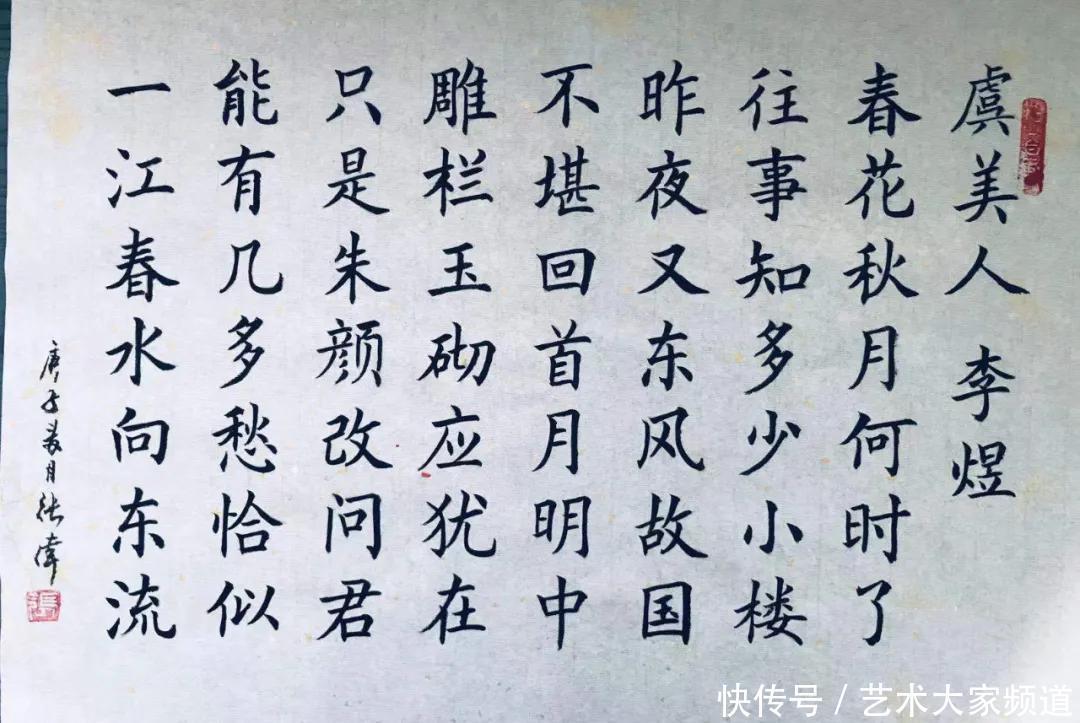 虞美人 李煜
春花秋月何时了
往事知多少小楼
昨夜又东风故国
不堪回首月明中
雕栏玉砌应犹在
只是朱颜改问君
能有几多愁恰似
一江春水向东流
庚子荔月张伟
張
快传号 / 艺术大家频道